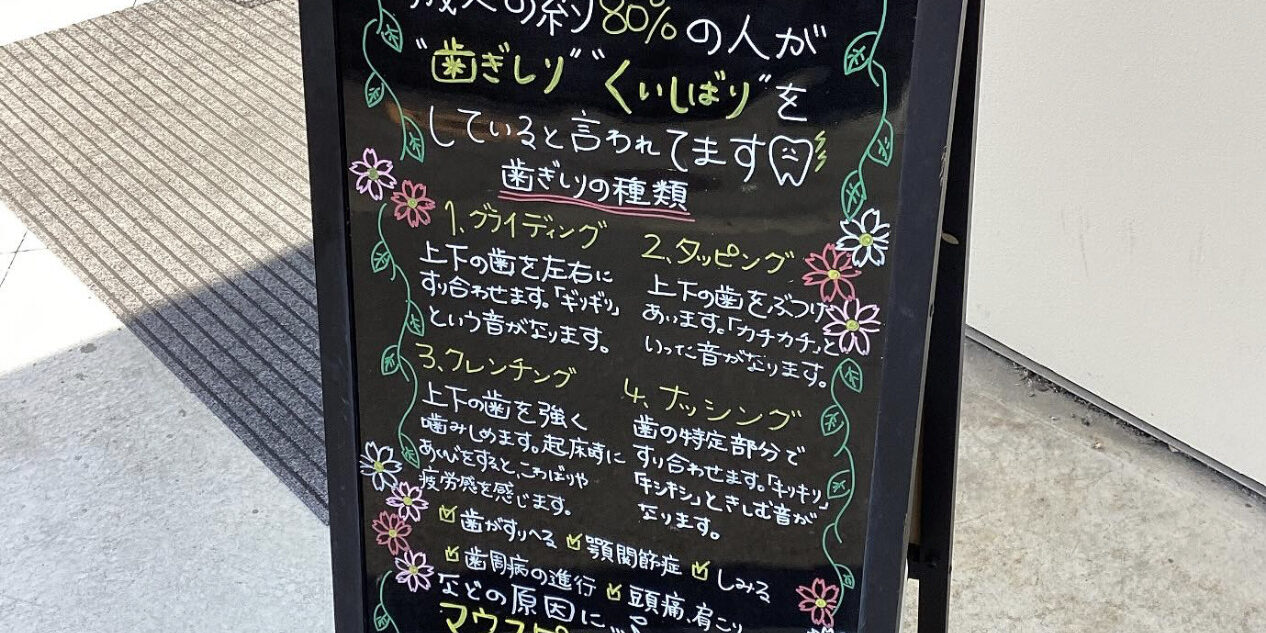 成人の約80%の人が
"歯ぎしり" "くいしばり"を
していると言われてます
歯ぎしりの種類
1、グライディング
上下の歯を左右に
すり合わせます。「ギリギリ」
という音がなります。
2、タッピング
上下の歯をぶつけ
あいます。「カチカチ」と
いった音がなります。
3、クレンチング
上下の歯を強く
噛みしめます。起床時に
あくびをすると、こわばりや
疲労感を感じます。
4、ナッシング
歯の特定部分で
すり合わせます。「キリキリ」
「キシキシ」ときしむ音が
なります。
☑歯がすりへる ☑顎関節症 ☑しみる
☑歯周病の進行 ☑頭痛、肩こり
などの原因に
マウスピ